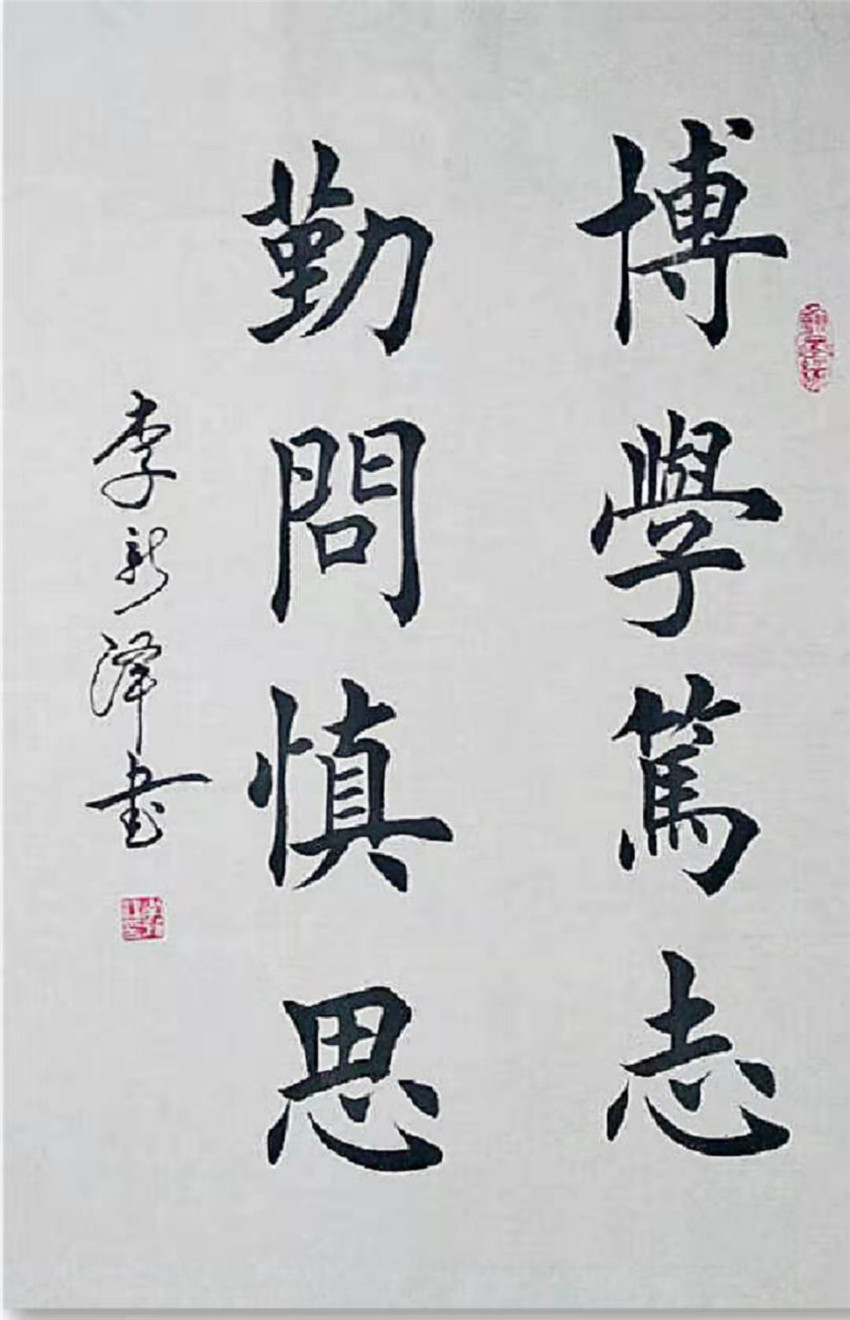 博學篤志
勤問慎思
李新澤书